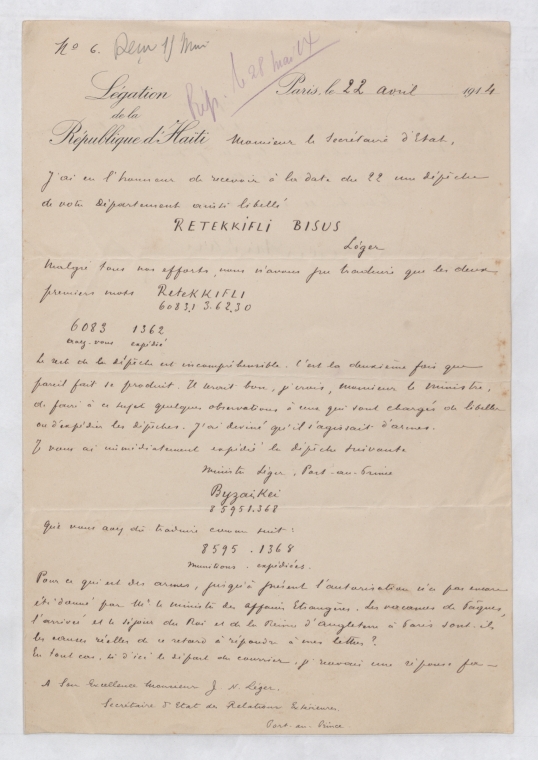 No 6. Reçu 15 Mai
Rép. le 28 mai 14
Légation
de la
République d'Haïti
Paris, le 22 avril 1914
Monsieur le Secrétaire d'Etat,
J'ai eu l'honneur de recevoir à la date du 22 une dépêche
de votre Département ainsi libellé
RETEKKIFLI BISUS
Léger
Malgré tous nos efforts, nous n'avons pu traduire que les deux
premiers mots RETEKKIFLI
60831 3.62.30
6083 1362
avez-vous expédié
Le reste de la dépêche est incompréhensible. C'est la deuxième fois que
pareil fait se produit. Il serait bon, je crois, Monsieur le Ministre,
de faire à ce sujet quelques observations à ceux qui sont chargés de libeller
ou d'expédier les dépêches. J'ai deviné qu'il s'agissait d'armes.
Je vous ai immédiatement expédié la dépêche suivante
Ministre Léger, Port-au-Prince
Byzaikei
85951.368
Que vous avez dû traduire comme suit :
8595 . 1368
munitions . expédiées.
Pour ce qui est des armes, jusqu'à présent l'autorisation n'a pas encore
été donné par Mr le Ministre des Affaires Etrangères. Les vacances de Pâques,
l'arrivée et le séjour du Roi et de la Reine d'Angleterre à Paris sont-ils
les causes réelles de ce retard à répondre à mes lettres ?
En tout cas, si d'ici le départ du courrier, je recevais une réponse fa-
A Son Excellence Monsieur J. N. Léger.
Secrétaire d'Etat des Relations Extérieures
Port-au-Prince